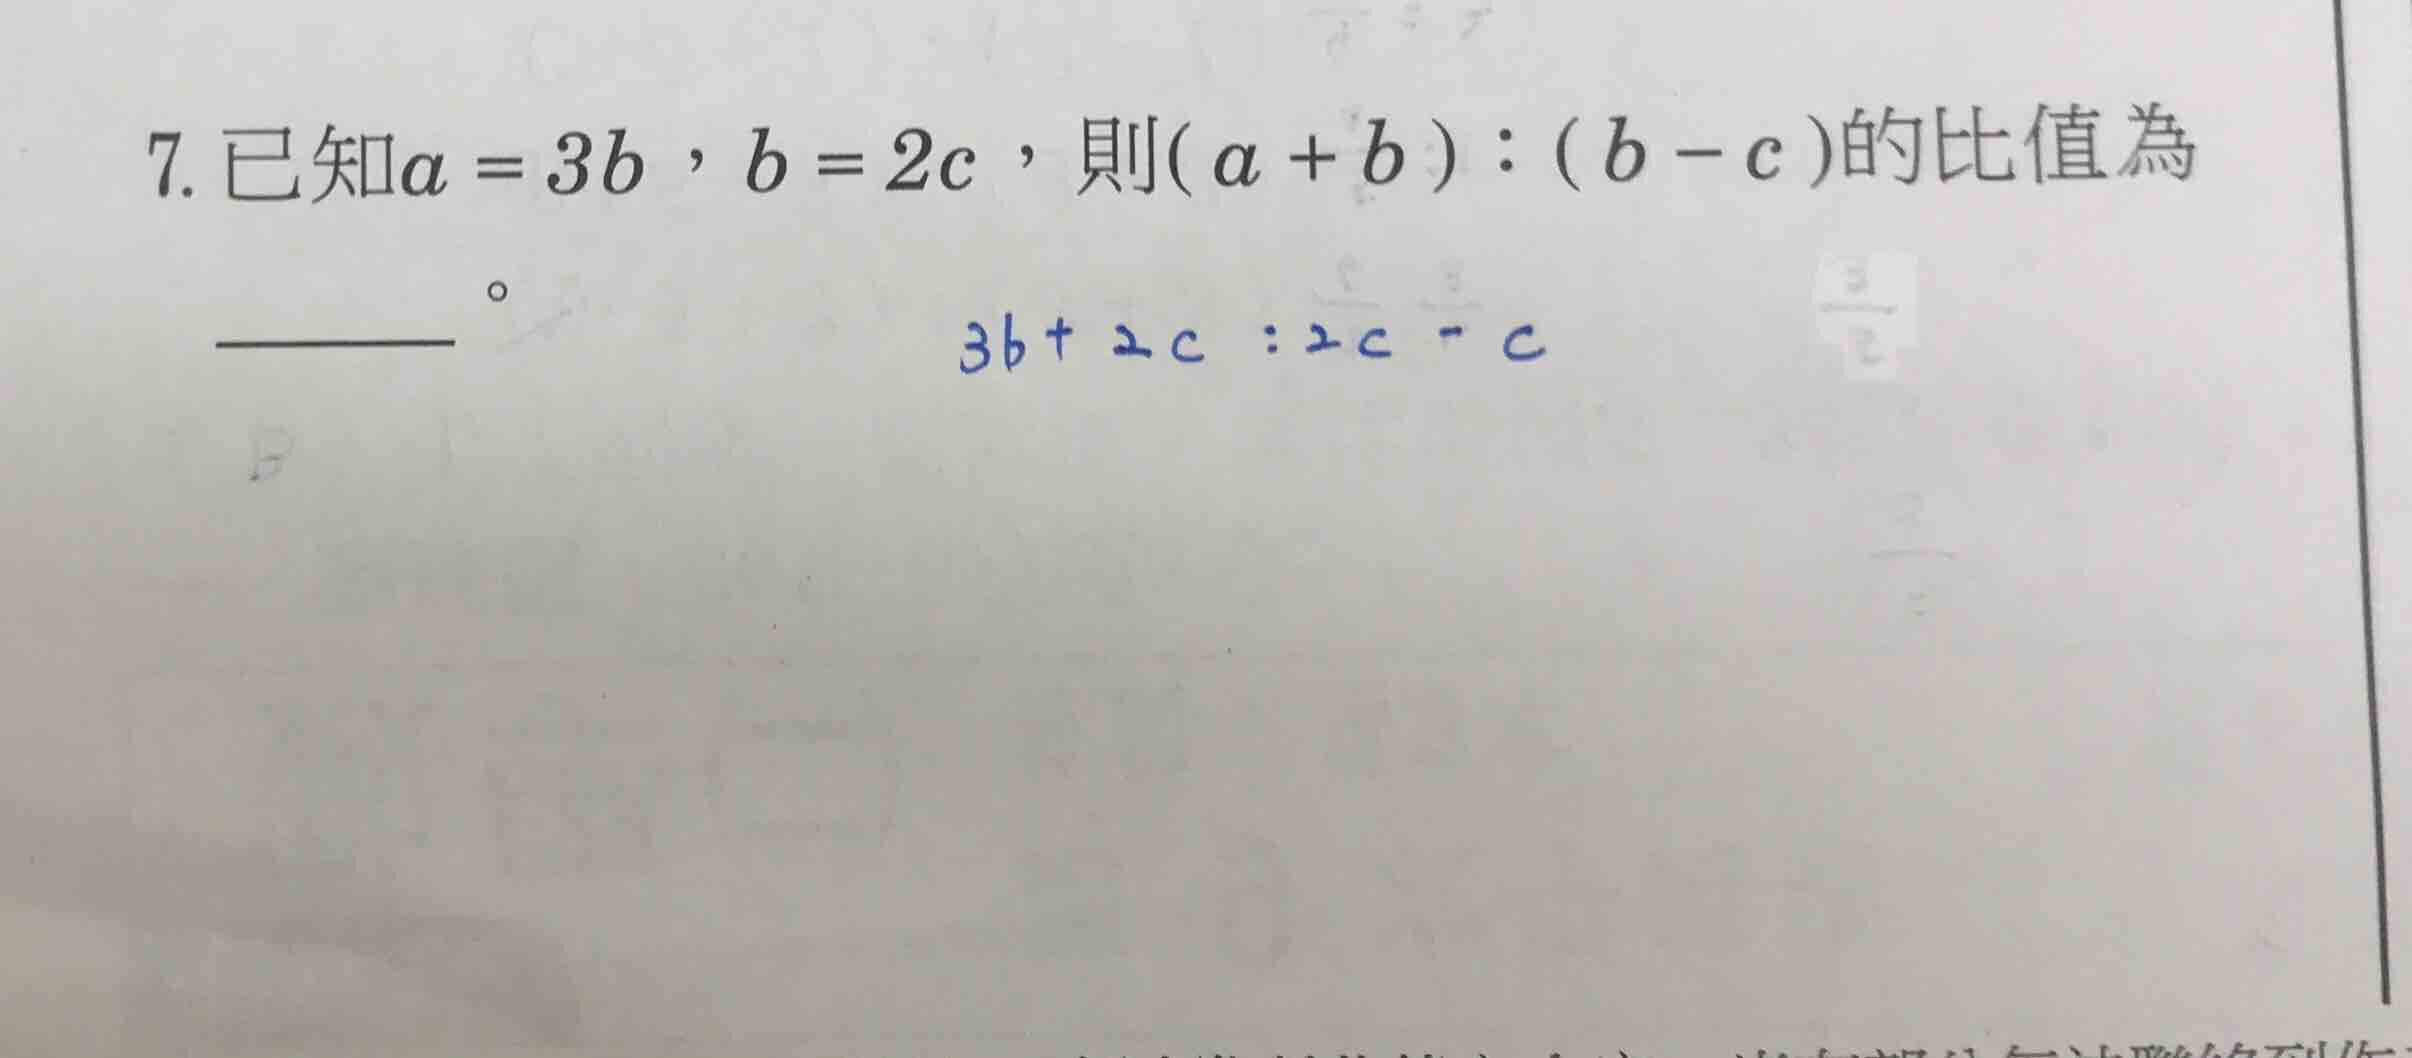 7. 已知a = 3b，b = 2c，則( a + b )：( b − c )的比值為
______。
3b + 2c : 2c - c